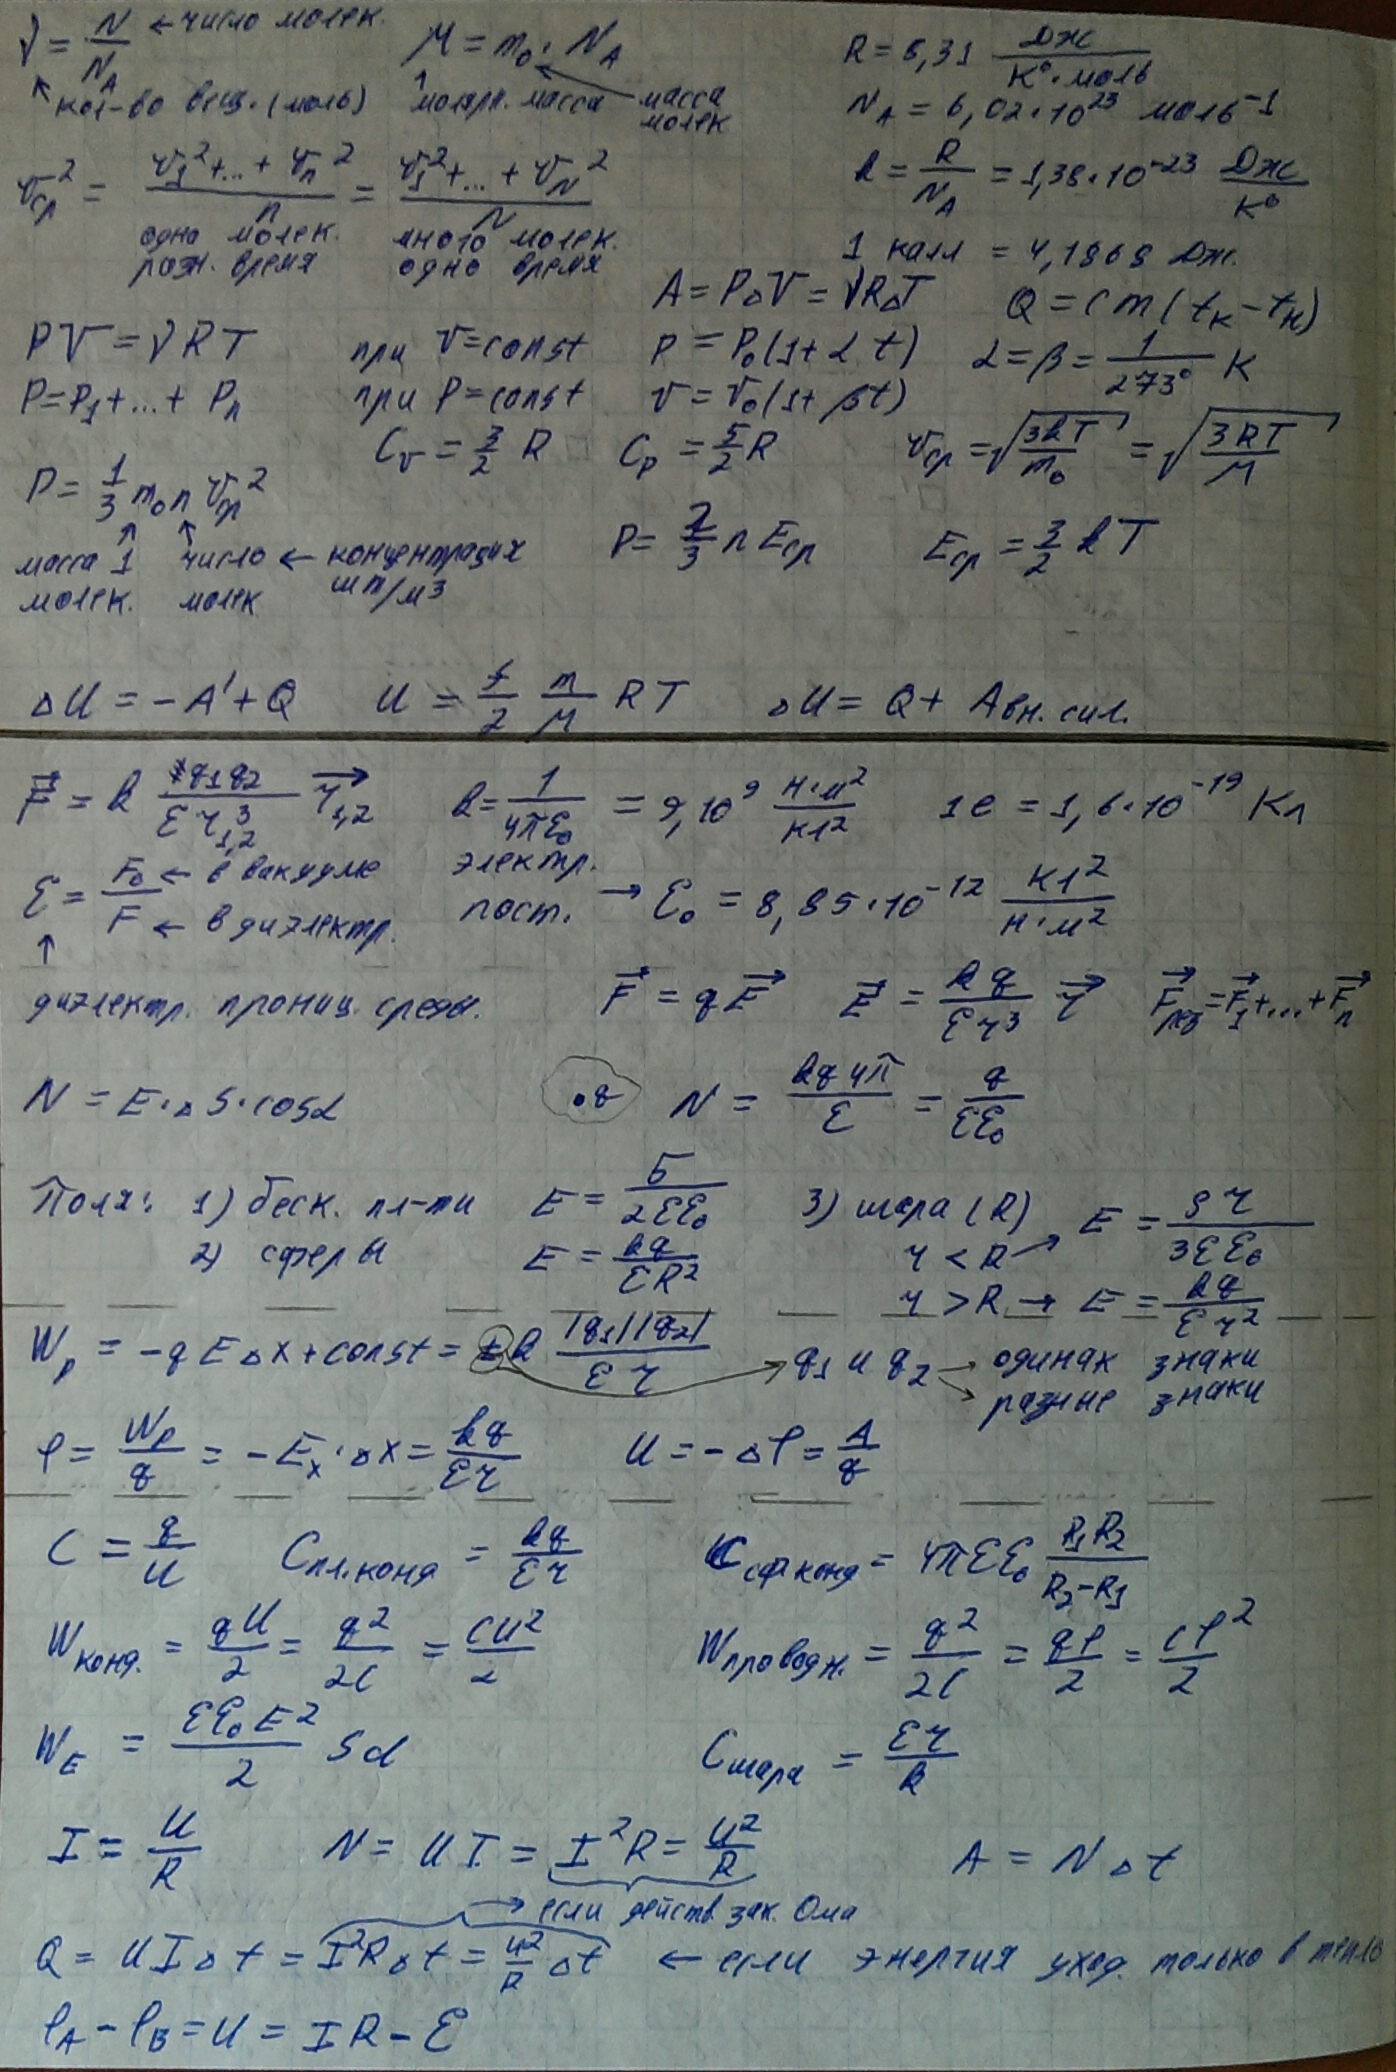 ν = N/N_A ← число молек.    M = m₀ · N_A    R = 8,31 Дж/(К°·моль)
кол-во вещ. (моль)    молярн. масса    масса молек    N_A = 6,02·10²³ моль⁻¹
v_ср² = (v₁²+...+v_n²)/n = (v₁²+...+v_N²)/N    k = R/N_A = 1,38·10⁻²³ Дж/К°
одно молек. разн. время    много молек. одно время    1 калл = 4,1868 Дж.
A = PΔV = νRΔT    Q = Cm(t_к − t_н)
PV = νRT    при V=const    P = P₀(1+αt)    α = β = 1/273° К
P = P₁+...+P_n    при P=const    V = V₀(1+βt)
C_v = 3/2 R    C_p = 5/2 R    v_ср = √(3kT/m₀) = √(3RT/M)
P = 1/3 m₀ n v_ср²    P = 2/3 n E_ср    E_ср = 3/2 kT
масса 1 молек.    число молек ← концентрация шт/м³
ΔU = −A' + Q    U = f/2 m/M RT    ΔU = Q + A вн. сил.
F⃗ = k q₁q₂/(εr₁,₂³) r⃗₁,₂    k = 1/(4πε₀) = 9,10⁹ Н·м²/Кл²    1e = 1,6·10⁻¹⁹ Кл
ε = F₀/F ← в вакууме ← в диэлектр.    электр. пост. → ε₀ = 8,85·10⁻¹² Кл²/(Н·м²)
диэлектр. прониц. среды.    F⃗ = qE⃗    E⃗ = kq/(εr³) r⃗    F⃗_рез = F⃗₁+...+F⃗_n
N = E·ΔS·cosα    •q    N = kq4π/ε = q/(εε₀)
Поля: 1) беск. пл-ти    E = σ/(2εε₀)    3) шара (R)
r < R → E = ρr/(3εε₀)
2) сферы    E = kq/(εR²)
r > R → E = kq/(εr²)
W_p = −qEΔx + const = ±k |q₁||q₂|/(εr)    q₁ и q₂ → одинак знаки
→ разные знаки
φ = W_p/q = −E_x·Δx = kq/(εr)    U = −Δφ = A/q
C = q/U    C пл. конд = kq/(εr)    C сф конд = 4πεε₀ R₁R₂/(R₂−R₁)
W конд. = qU/2 = q²/2C = CU²/2    W проводн. = q²/2C = qφ/2 = Cφ²/2
W_E = εε₀E²/2 Sd    C шара = εr/k
I = U/R    N = UI = I²R = U²/R    A = NΔt
→ если действ. зак. Ома
Q = UIΔt = I²RΔt = U²/R Δt ← если энергия уход. только в тепло
φ_A − φ_B = U = IR − ℰ